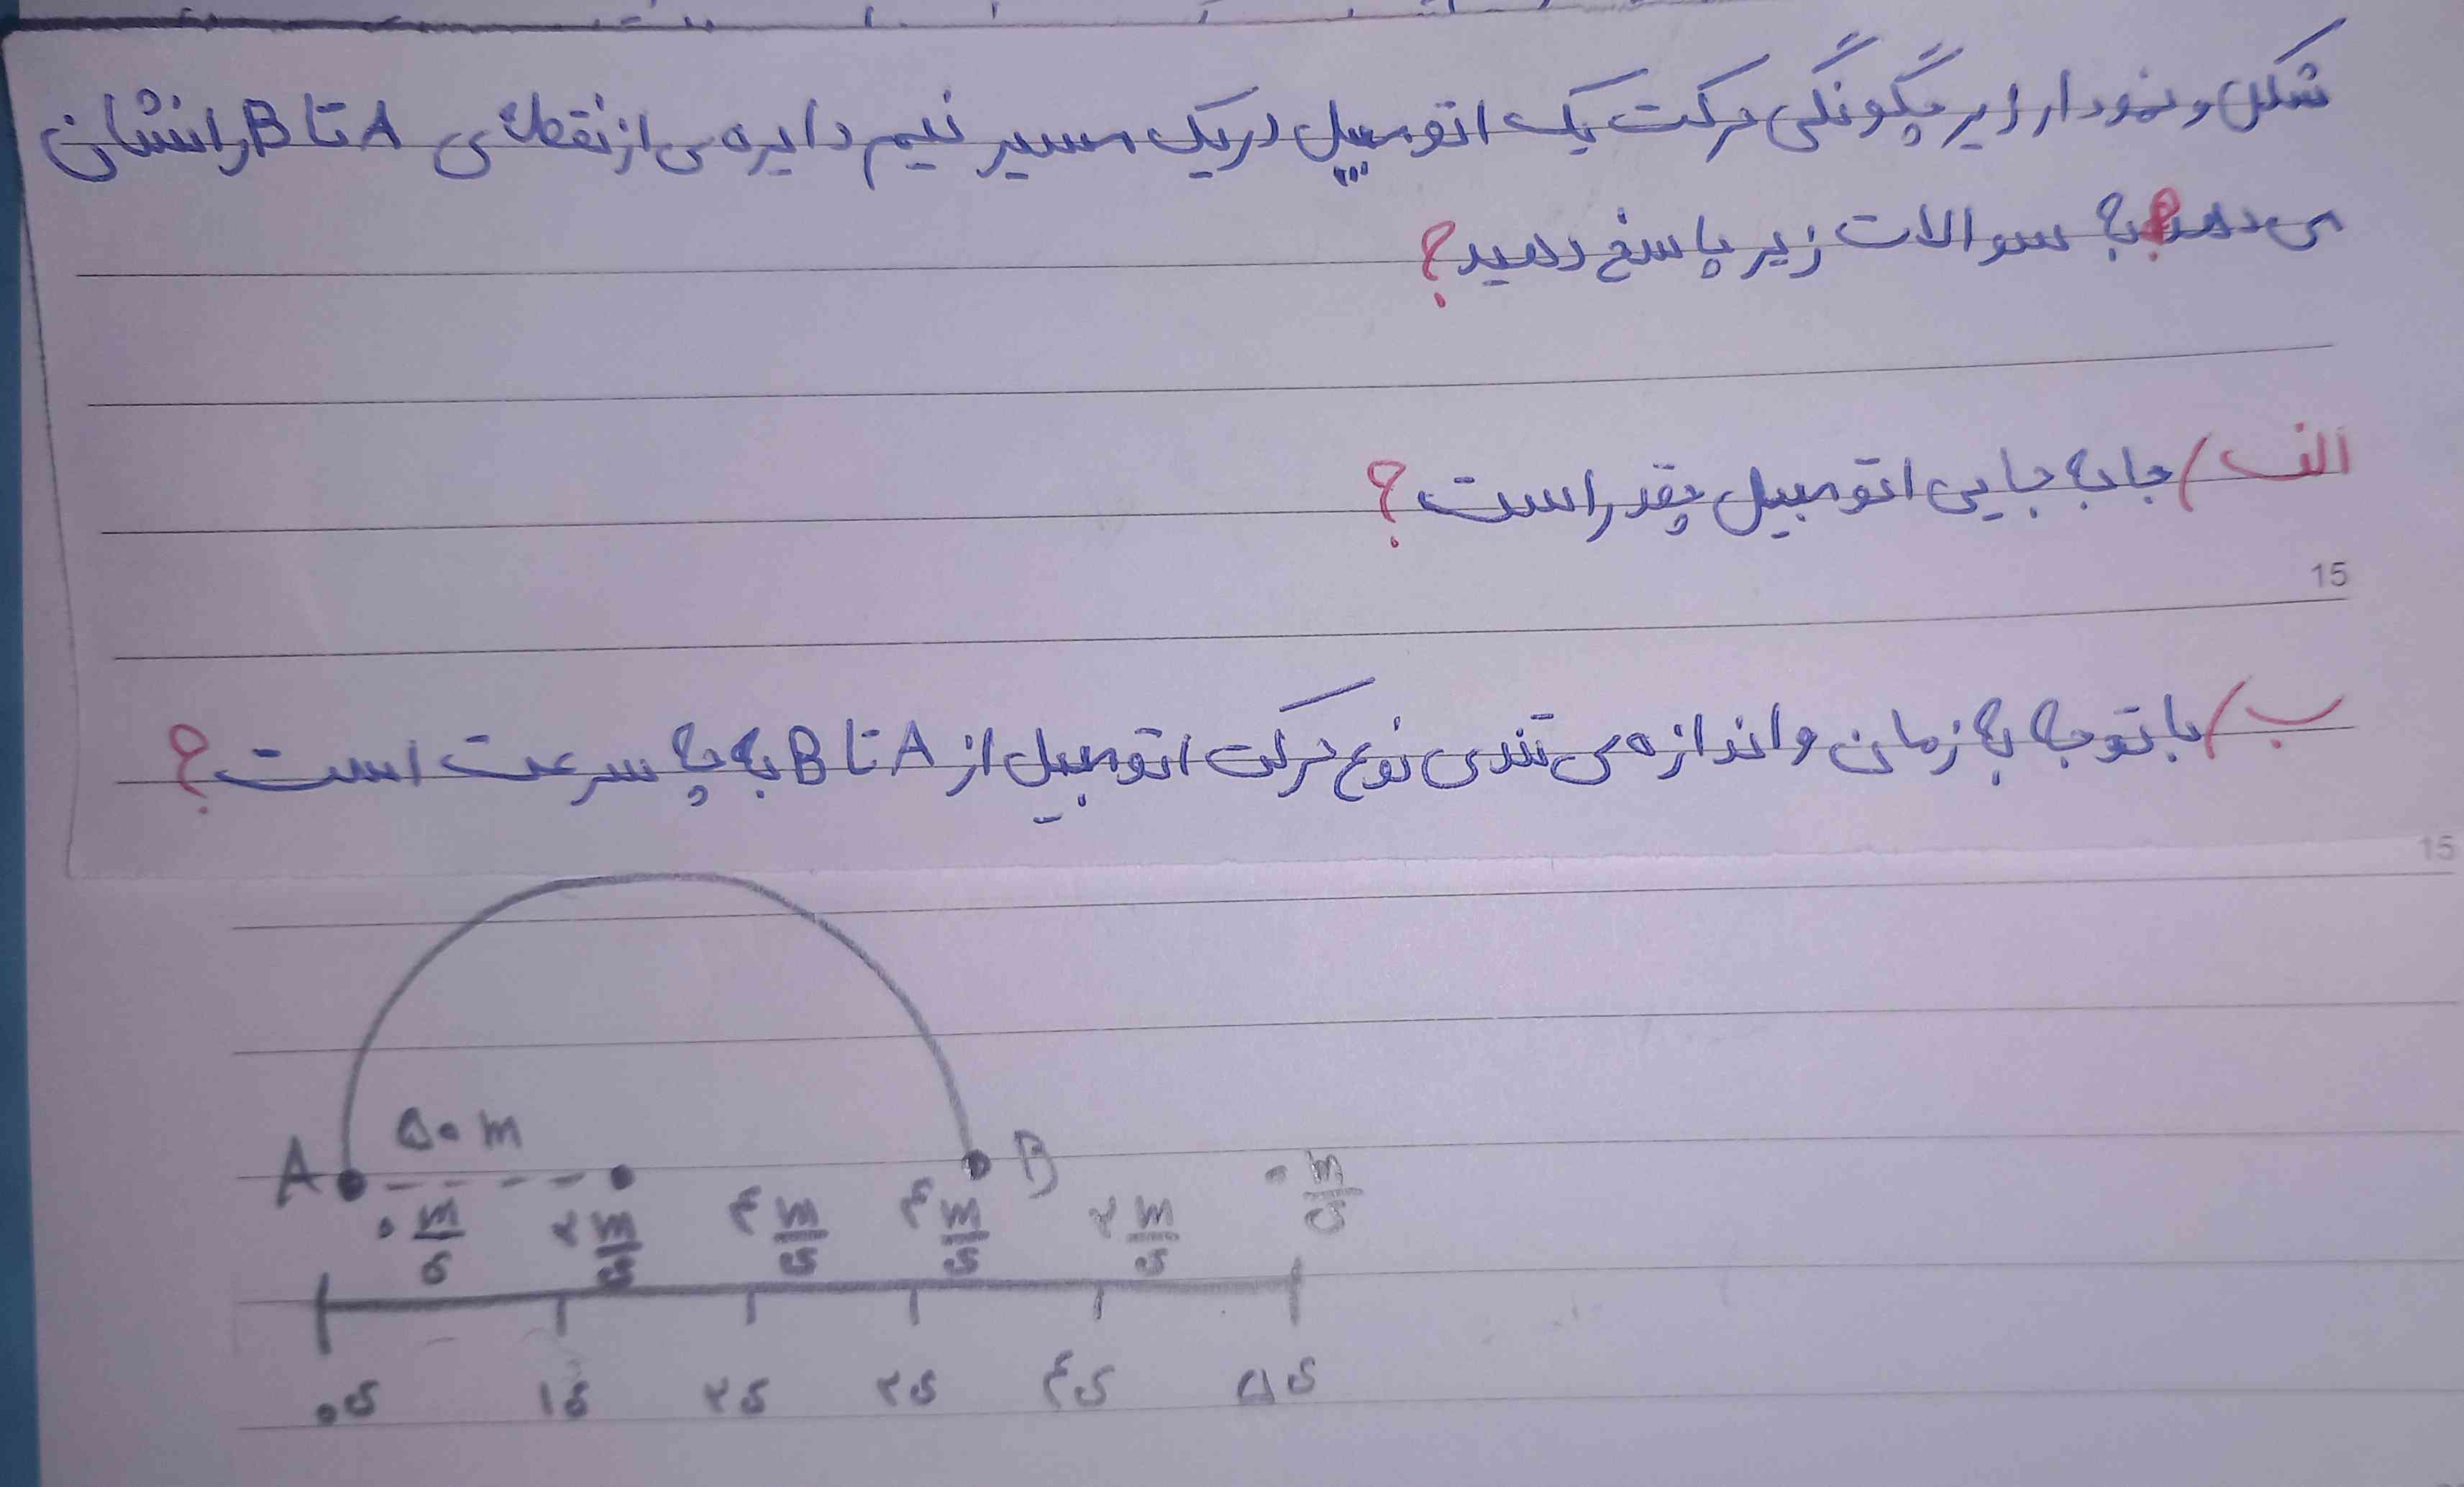 شکل و نمودار زیر چگونگی حرکت یک اتومبیل در یک مسیر نیم دایره ی از نقطه ی A تا B را نشان
می دهد به سوالات زیر پاسخ دهید؟
الف) جابه جایی اتومبیل چقدر است؟
15
ب) با توجه به زمان و اندازه ی تندی نوع حرکت اتومبیل از A تا B به چه سرعت است؟
15
۵۰ m
A B
۰ m/s ۲ m/s ۴ m/s ۴ m/s ۲ m/s ۰ m/s
۰s ۱s ۲s ۳s ۴s ۵s